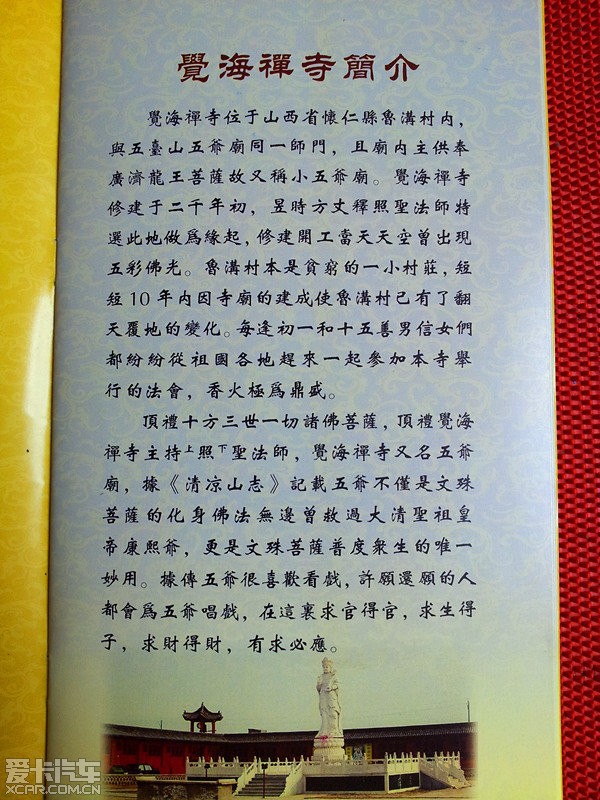 覺海禪寺簡介
覺海禪寺位于山西省懷仁縣魯溝村内，
與五臺山五爺廟同一師門，且廟内主供奉
廣濟龍王菩薩故又稱小五爺廟。覺海禪寺
修建于二千年初，昱時方丈釋照聖法師特
選此地做爲緣起，修建開工當天天空曾出現
五彩佛光。魯溝村本是貧窮的一小村莊，短
短10年内因寺廟的建成使魯溝村已有了翻
天覆地的變化。每逢初一和十五善男信女們
都紛紛從祖國各地趕來一起參加本寺舉
行的法會，香火極爲鼎盛。
頂禮十方三世一切諸佛菩薩，頂禮覺海
禪寺主持上照下聖法師，覺海禪寺又名五爺
廟，據《清凉山志》記載五爺不僅是文珠
菩薩的化身佛法無邊曾救過大清聖祖皇
帝康熙爺，更是文珠菩薩普度衆生的唯一
妙用。據傳五爺很喜歡看戲，許願還願的人
都會爲五爺唱戲，在這裏求官得官，求生得
子，求財得財，有求必應。
爱卡汽车
XCAR.COM.CN